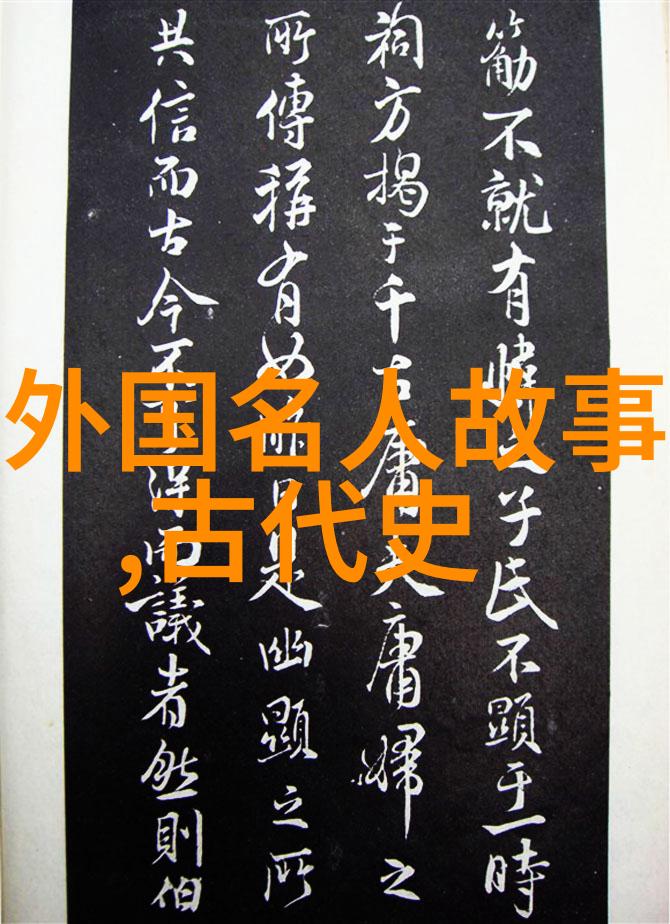 不就有氏不顯于一時
祠方揭于千古庸夫庸婦之
所傳稱有如是幽顯之所
共信而古今不得而議者然則伯
外国名人故事
,古代史